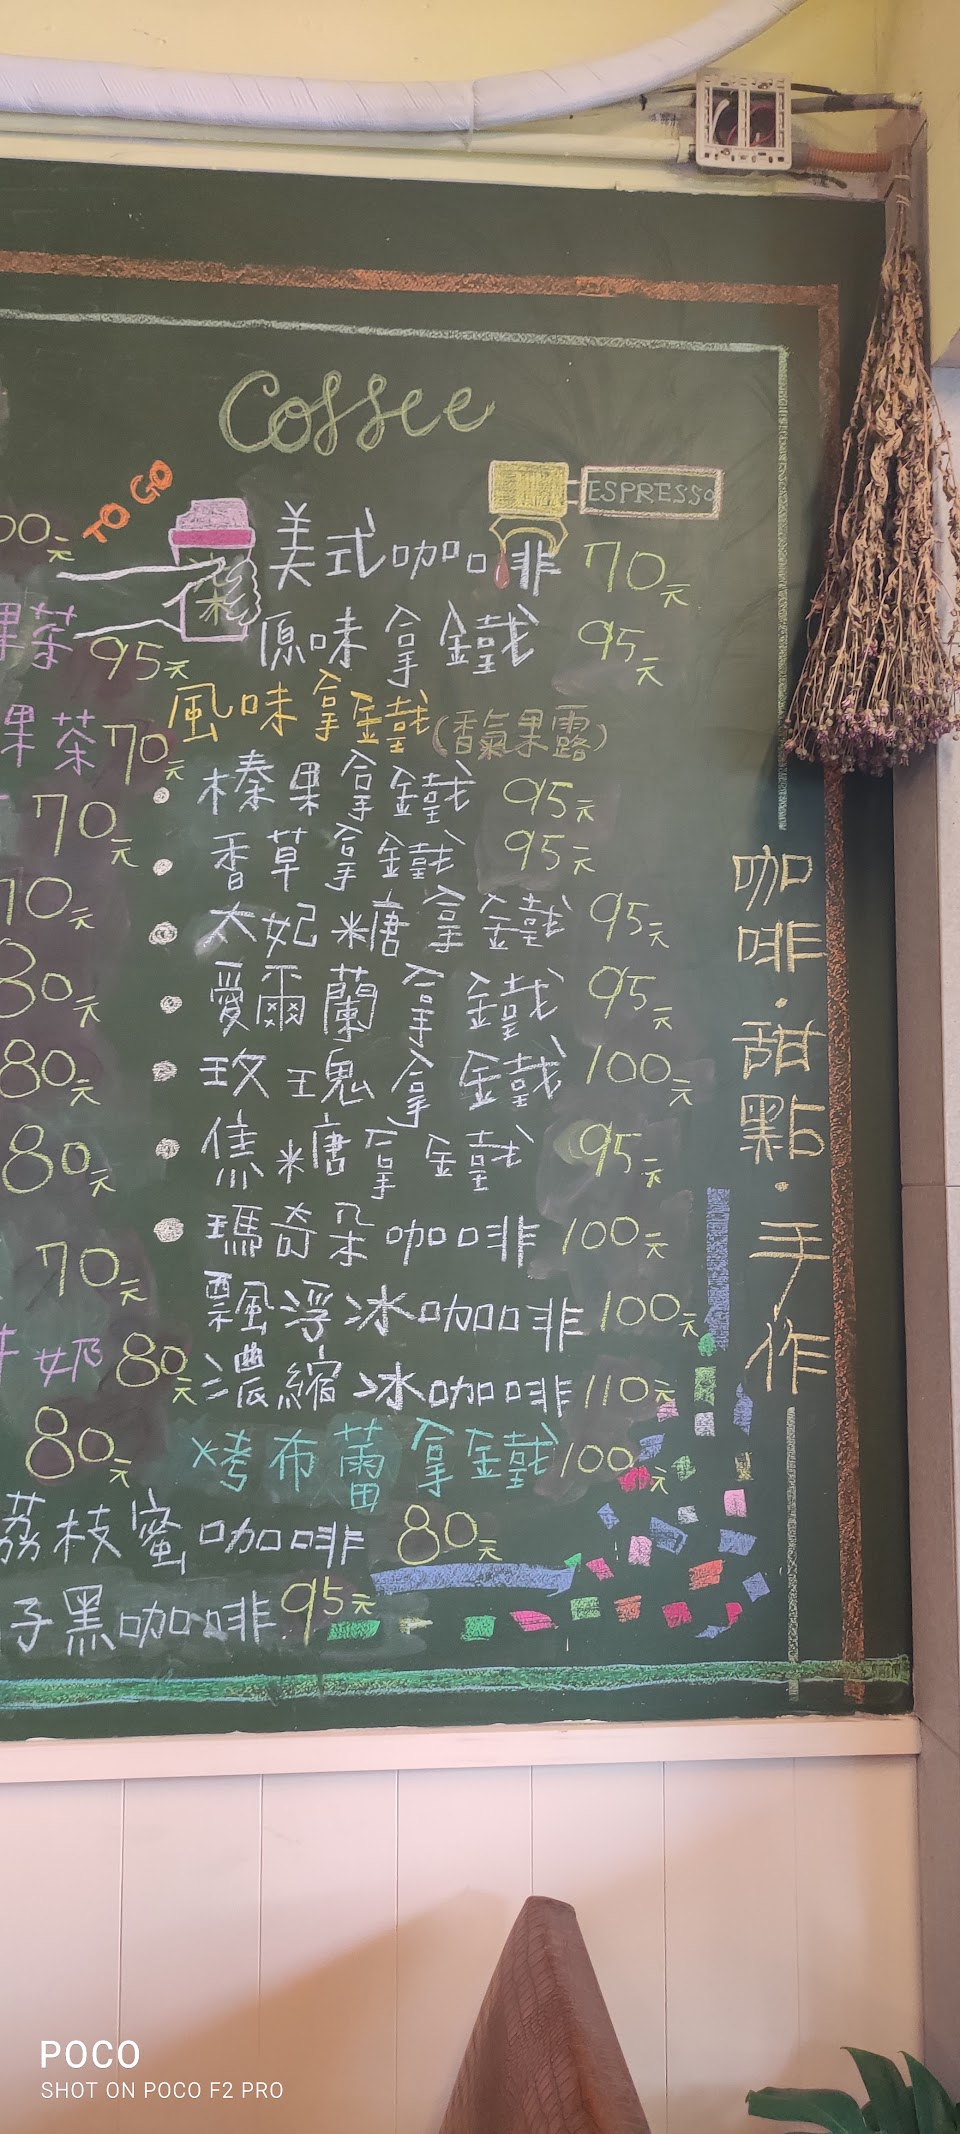 Coffee
TO GO
ESPRESSO
00元
美式咖啡 70元
果茶 95元
原味拿鐵 95元
風味拿鐵(香氣果露)
果茶 70元
• 榛果拿鐵 95元
70元
• 香草拿鐵 95元
70元
• 太妃糖拿鐵 95元
80元
• 愛爾蘭拿鐵 95元
80元
• 玫瑰拿鐵 100元
80元
• 焦糖拿鐵 95元
• 瑪奇朵咖啡 100元
70元
飄浮冰咖啡 100元
奶 80元
濃縮冰咖啡 110元
80元
烤布蕾拿鐵 100元
荔枝蜜咖啡 80元
子黑咖啡 95元
咖啡·甜點·手作
POCO
SHOT ON POCO F2 PRO